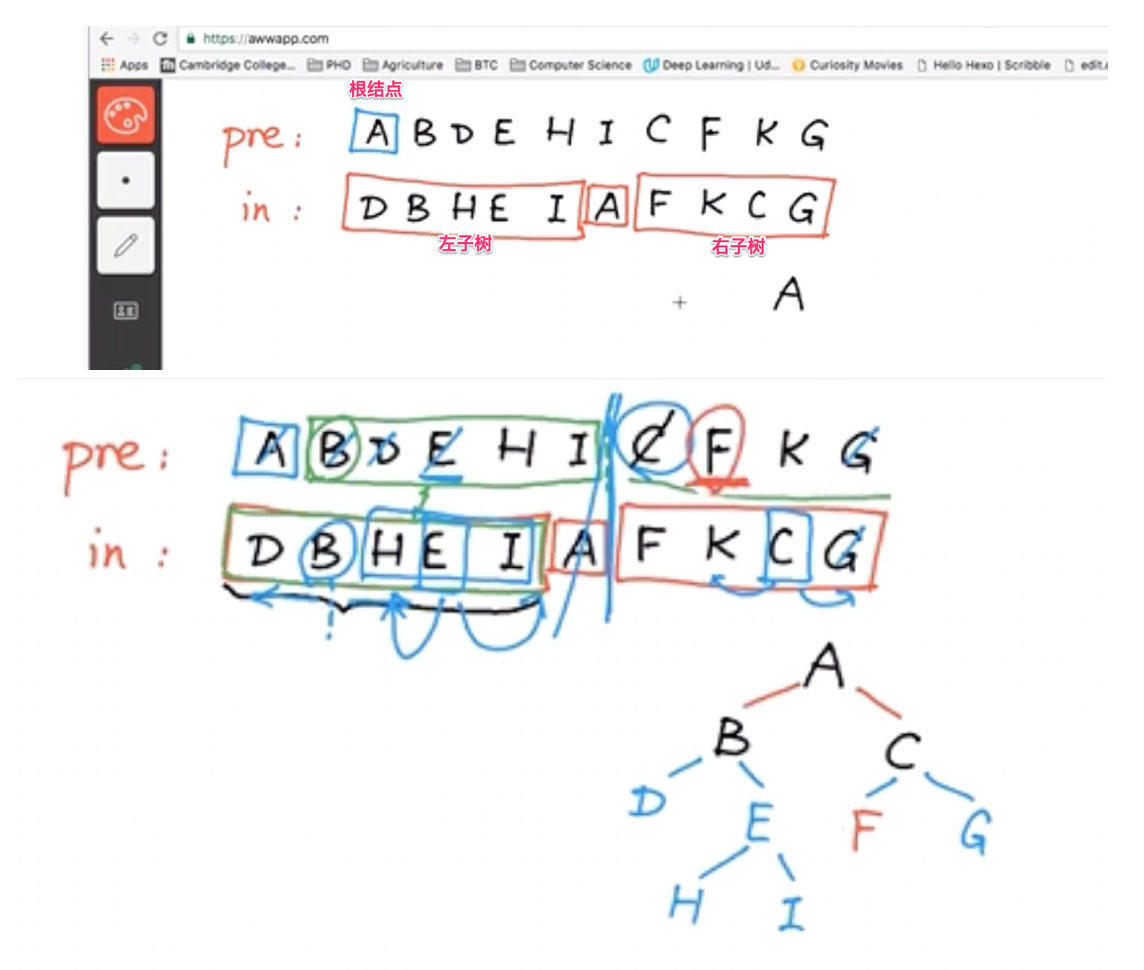 https://awwapp.com
Apps Cambridge College... PHD Agriculture BTC Computer Science Deep Learning | Ud... Curiosity Movies Hello Hexo | Scribble edit.
根结点
pre: A B D E H I C F K G
in : D B H E I A F K C G
左子树 右子树
A
pre: A B D E H I C F K G
in : D B H E I A F K C G
A
B C
D E F G
H I